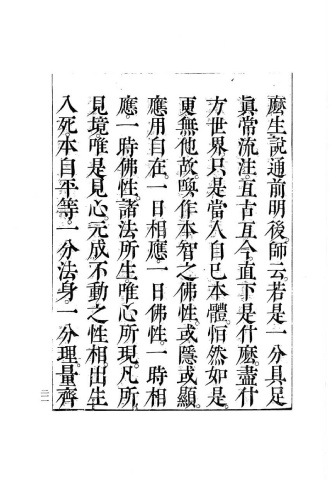 麽生說通前明後。師云。若是一分具足
眞常流注。亙古亙今。直下是什麽。盡什
方世界。只是當人自己本體。恒然如是。
更無他故。喚作本智之佛性。或隱或顯。
應用自在。一日相應一日佛性。一時相
應。一時佛性。諸法所生。唯心所現。凡所
見境。唯是見心。元成不動之性相。出生
入死。本自平等。一分法身。一分理。量齊
二一